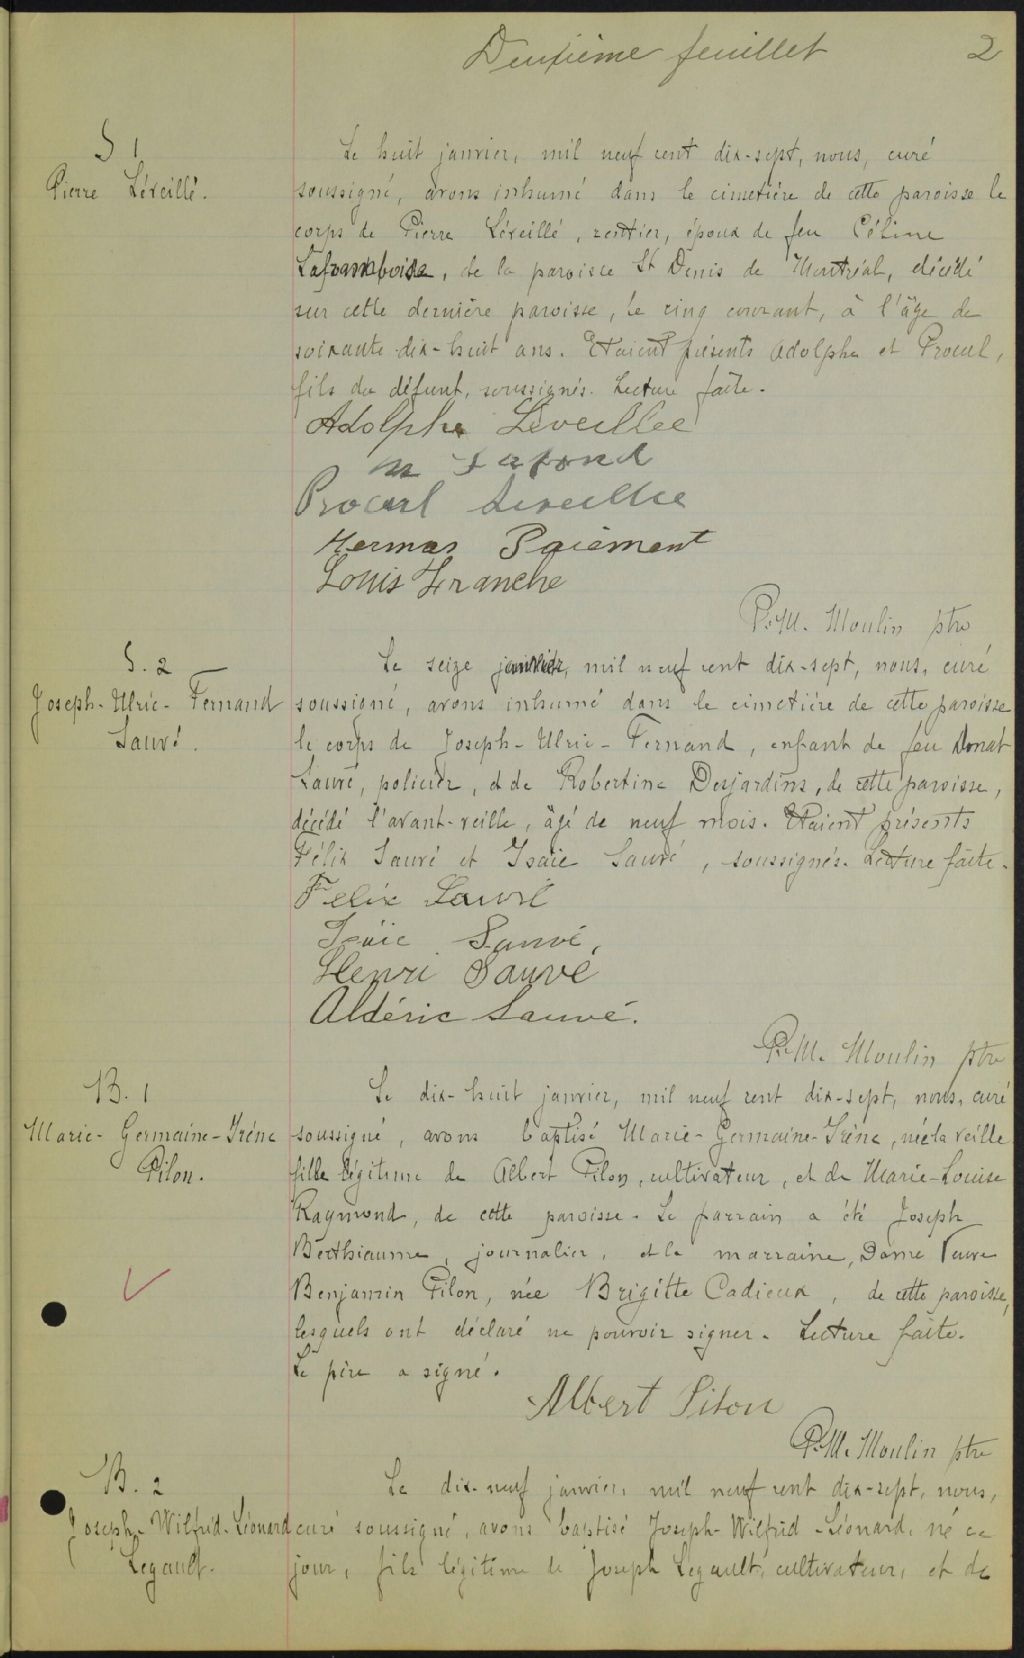 Deuxième feuillet 2
S 1
Pierre Léveillé.
Le huit janvier, mil neuf cent dix-sept, nous, curé
soussigné, avons inhumé dans le cimetière de cette paroisse le
corps de Pierre Léveillé, rentier, époux de feu Céline
Laframboise, de la paroisse St Denis de Montréal, décédé
sur cette dernière paroisse, le cinq courant, à l'âge de
soixante-dix-huit ans. Etaient présents Adolphe et Procul,
fils du défunt, soussignés. Lecture faite.
Adolphe Léveillée
Lafond
Procul Léveillée
Hermas Paiement
Louis Franche
P.M. Moulin ptre
S. 2
Joseph-Ulric-Fernand
Sauvé.
Le seize janvier, mil neuf cent dix-sept, nous, curé
soussigné, avons inhumé dans le cimetière de cette paroisse
le corps de Joseph-Ulric-Fernand, enfant de feu Donat
Sauvé, policier, et de Robertine Desjardins, de cette paroisse,
décédé l'avant-veille, âgé de neuf mois. Etaient présents
Félix Sauvé et Isaïe Sauvé, soussignés. Lecture faite.
Felix Sauvé
Isaïe Sauvé,
Henri Sauvé
Aldéric Sauvé.
P.M. Moulin ptre
B. 1
Marie-Germaine-Irène
Pilon.
Le dix-huit janvier, mil neuf cent dix-sept, nous, curé
soussigné, avons baptisé Marie-Germaine-Irène, née la veille
fille légitime de Albert Pilon, cultivateur, et de Marie-Louise
Raymond, de cette paroisse. Le parrain a été Joseph
Berthiaume, journalier, et la marraine, Dame Veuve
Benjamin Pilon, née Brigitte Cadieux, de cette paroisse,
lesquels ont déclaré ne pouvoir signer. Lecture faite.
Le père a signé.
Albert Pilon
P.M. Moulin ptre
B. 2
Joseph-Wilfrid-Léonard
Legault.
Le dix-neuf janvier, mil neuf cent dix-sept, nous,
curé soussigné, avons baptisé Joseph-Wilfrid-Léonard, né ce
jour, fils légitime de Joseph Legault, cultivateur, et de